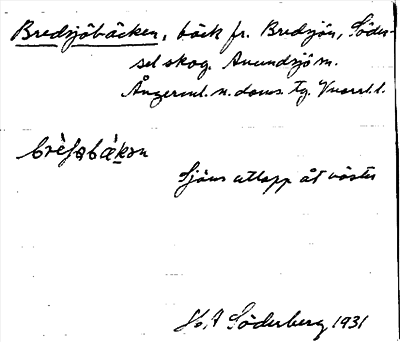 Bredsjöbäcken, bäck fr. Bredsjön, Söder-
sel skog. Anundsjö sn.
Ångerml. n. doms. tg. Vnorrl. l.
brèʃøbä̀kən
Sjöns utlopp åt väster
H. A Söderberg 1931